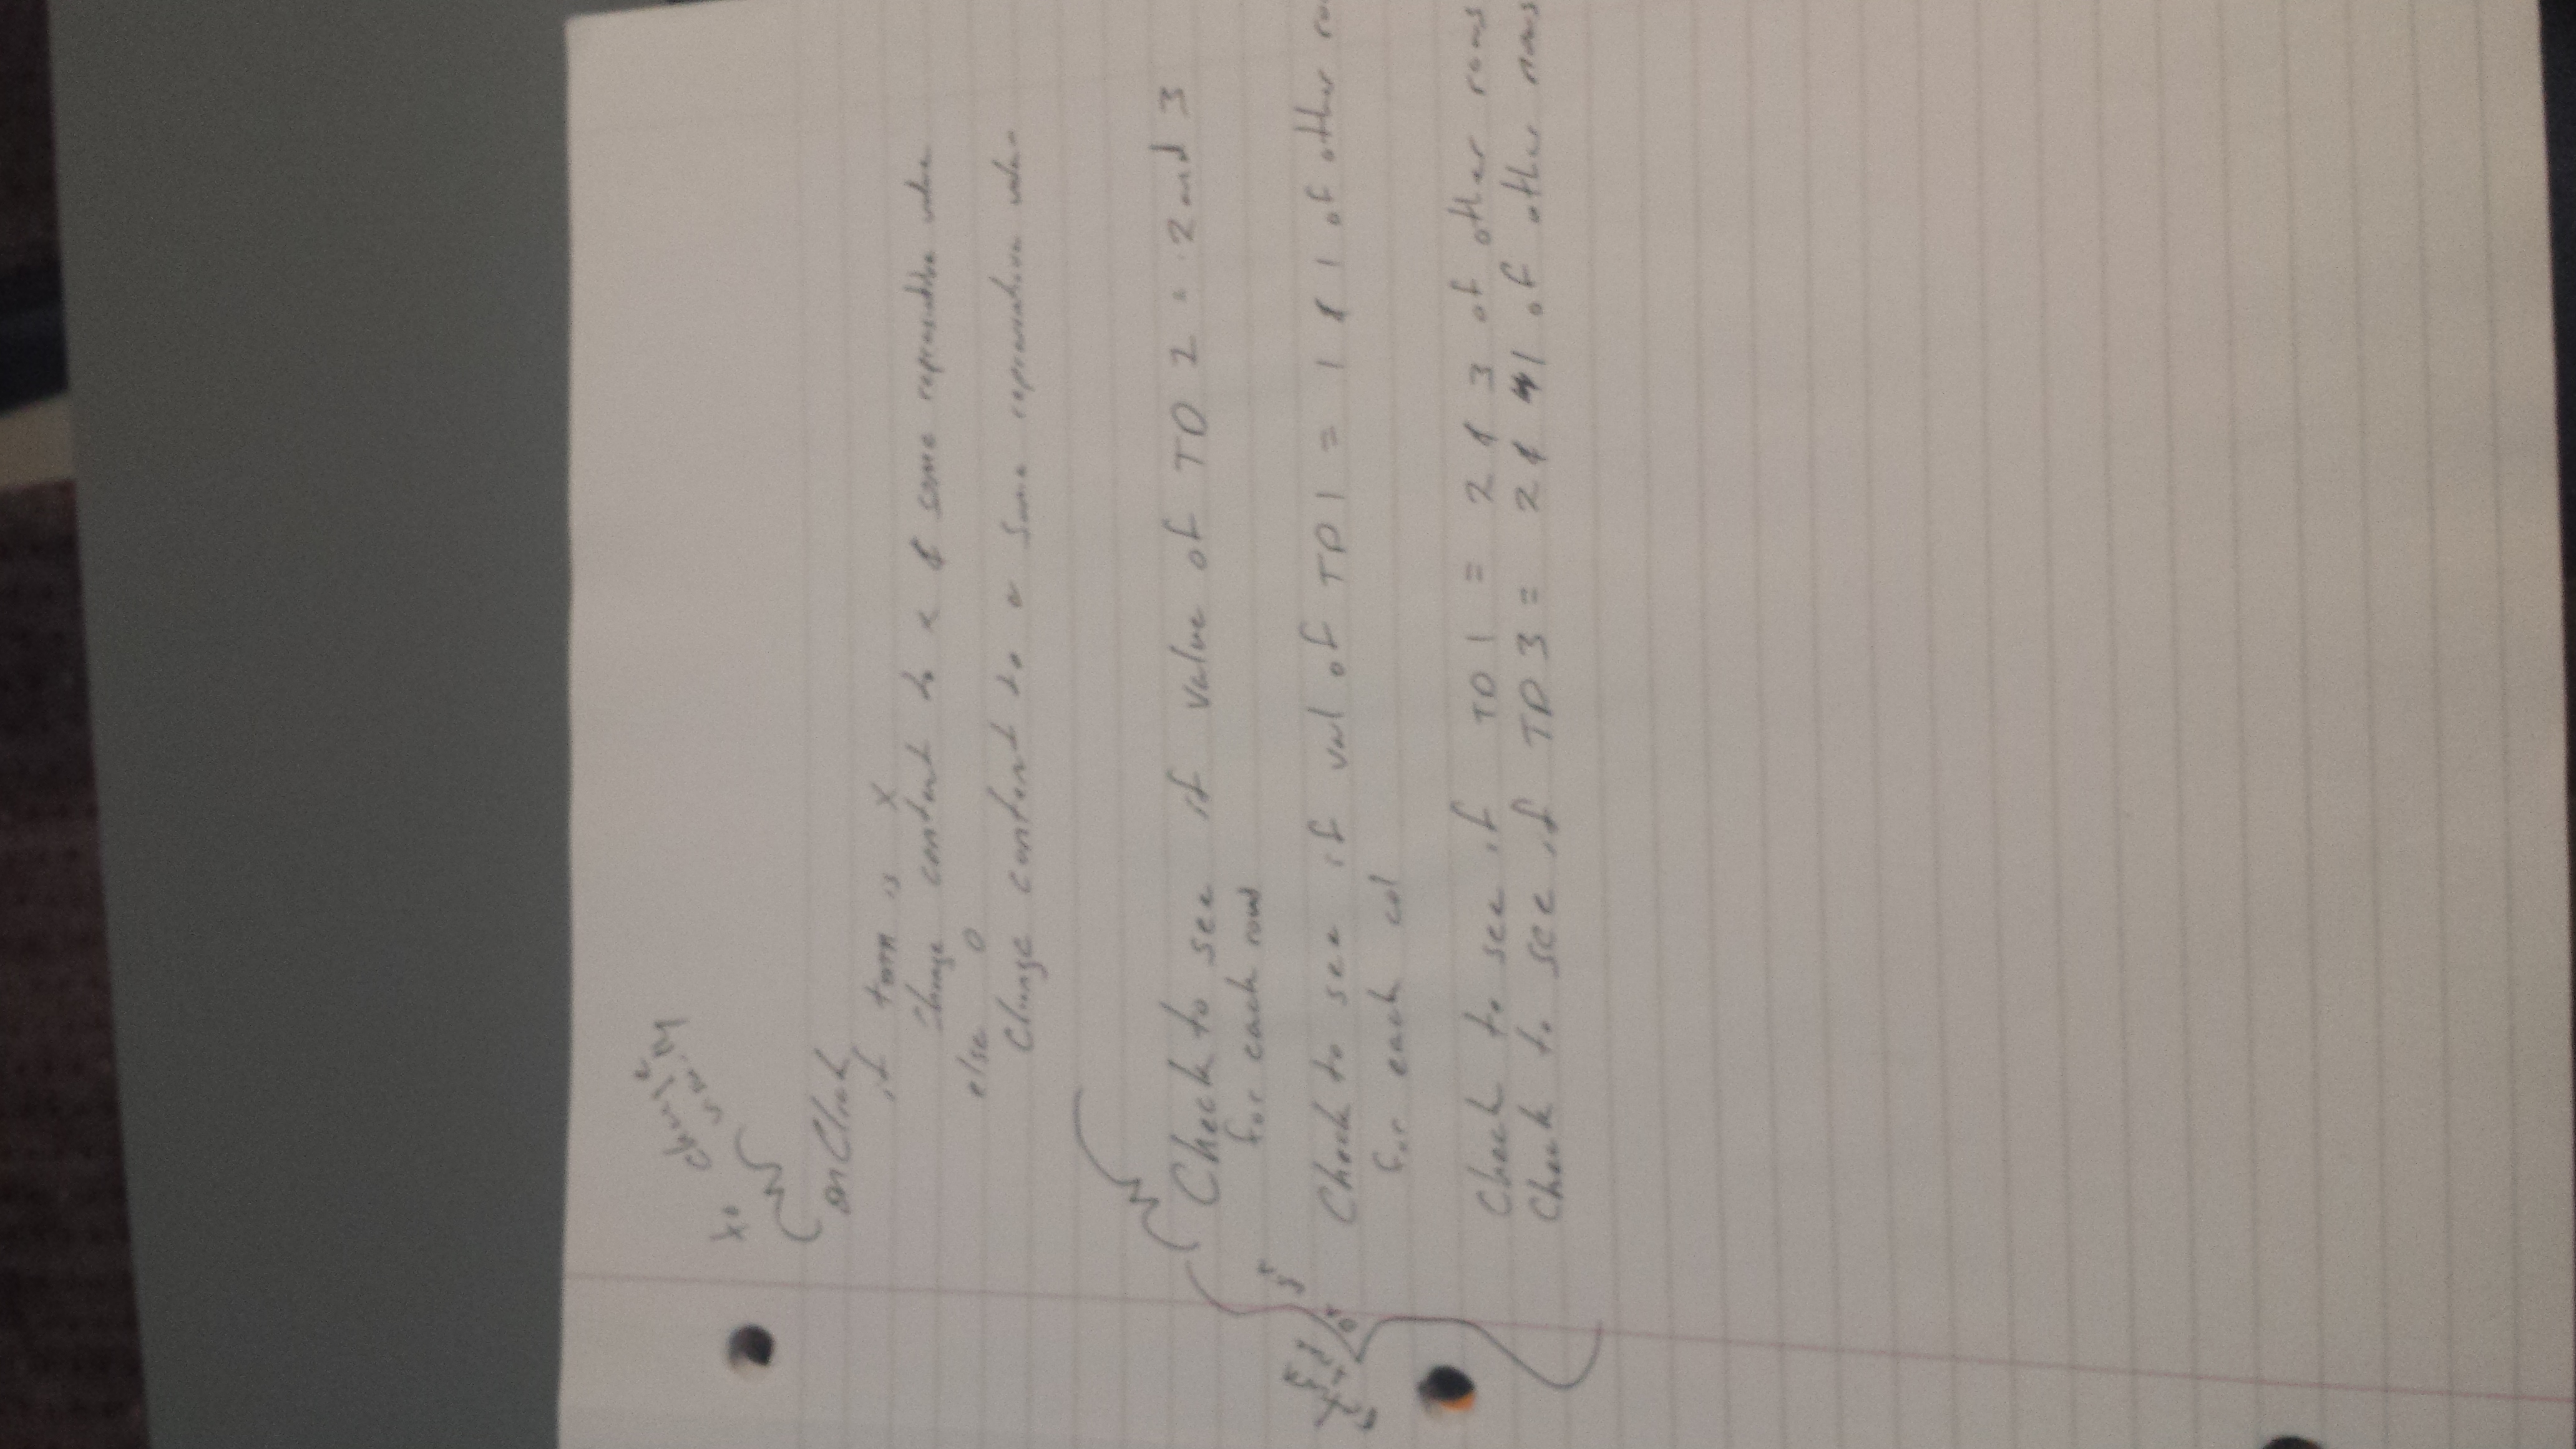 to change
onClick
if turn is X
Change content to x & some representative value
else O
Change content to o some representative value
Check to see if value of TD 2 = 2 and 3
for each row
return
true
or
Check to see if val of TD 1 = 1 & 1 of other ro
for each col
Check to see if TD 1 = 2 & 3 of other rows
Check to see if TD 3 = 2 & 1 of other rows